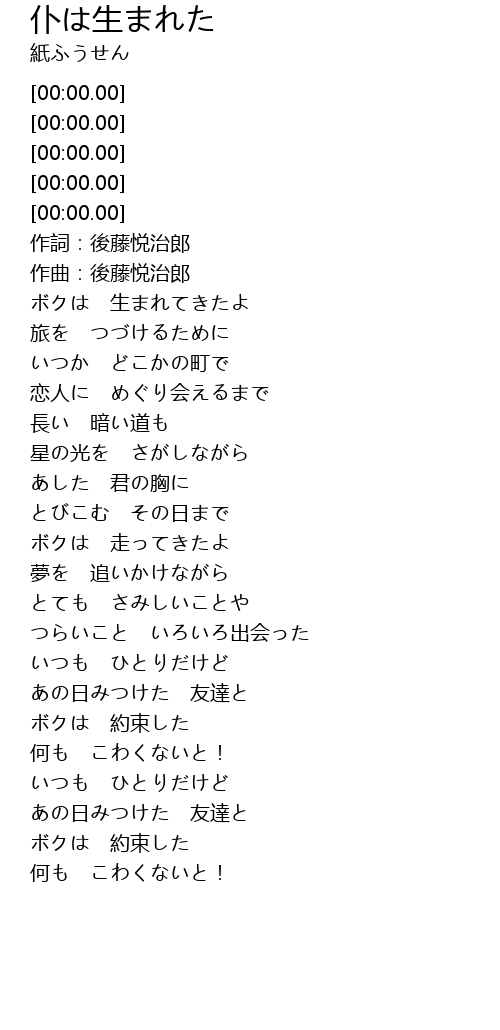 仆は生まれた
紙ふうせん
[00:00.00]
[00:00.00]
[00:00.00]
[00:00.00]
[00:00.00]
作詞：後藤悦治郎
作曲：後藤悦治郎
ボクは　生まれてきたよ
旅を　つづけるために
いつか　どこかの町で
恋人に　めぐり会えるまで
長い　暗い道も
星の光を　さがしながら
あした　君の胸に
とびこむ　その日まで
ボクは　走ってきたよ
夢を　追いかけながら
とても　さみしいことや
つらいこと　いろいろ出会った
いつも　ひとりだけど
あの日みつけた　友達と
ボクは　約束した
何も　こわくないと！
いつも　ひとりだけど
あの日みつけた　友達と
ボクは　約束した
何も　こわくないと！